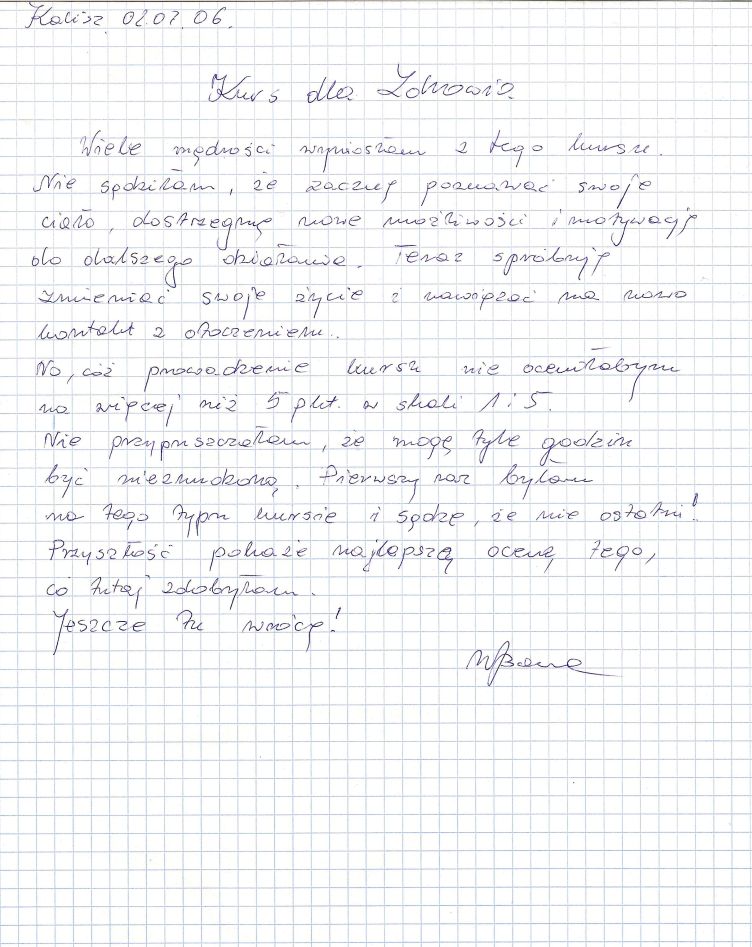 Kalisz 02.07.06.
Kurs dla Zdrowia.
Wiele mądrości wyniosłam z tego kursu.
Nie sądziłam, że zacznę poznawać swoje
ciało, dostrzegnę nowe możliwości i motywację
do dalszego działania. Teraz spróbuję
zmieniać swoje życie i nawiązać na nowo
kontakt z otoczeniem..
No, cóż prowadzenie kursu nie oceniłabym
na więcej niż 5 pkt. w skali 1 i 5.
Nie przypuszczałam, że mogę tyle godzin
być nieznudzoną. Pierwszy raz byłam
na tego typu kursie i sądzę, że nie ostatni!
Przyszłość pokaże najlepszą oceną tego,
co tutaj zdobyłam.
Jeszcze tu wrócę!